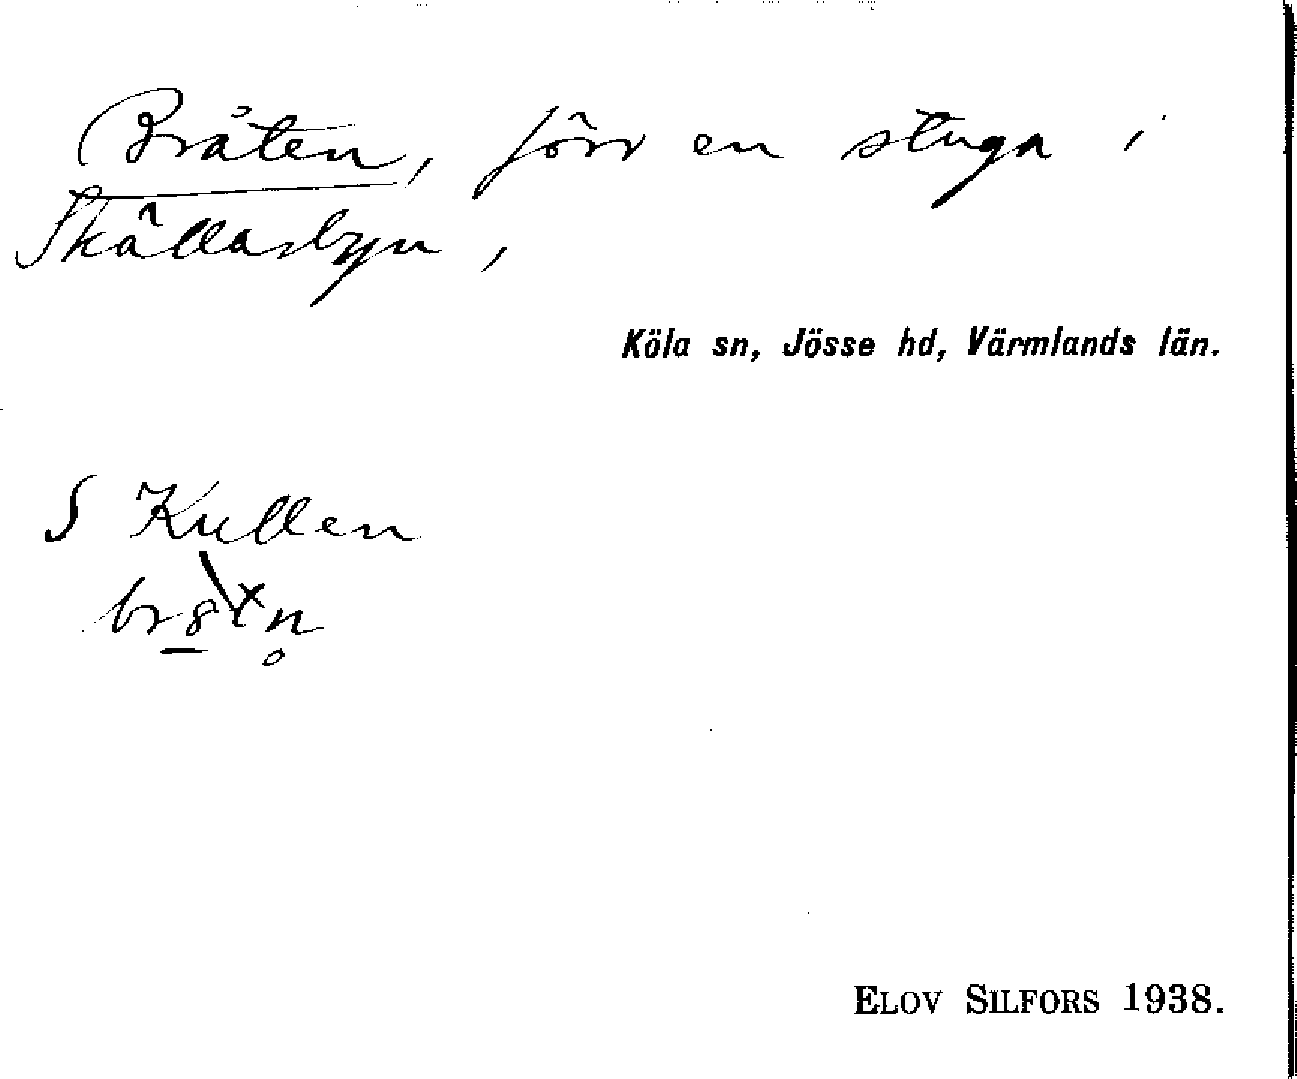 Bråten, förr en stuga i
Skällarbyn,
Köla sn, Jösse hd, Värmlands län.
S Kullen
ELOV SILFORS 1938.